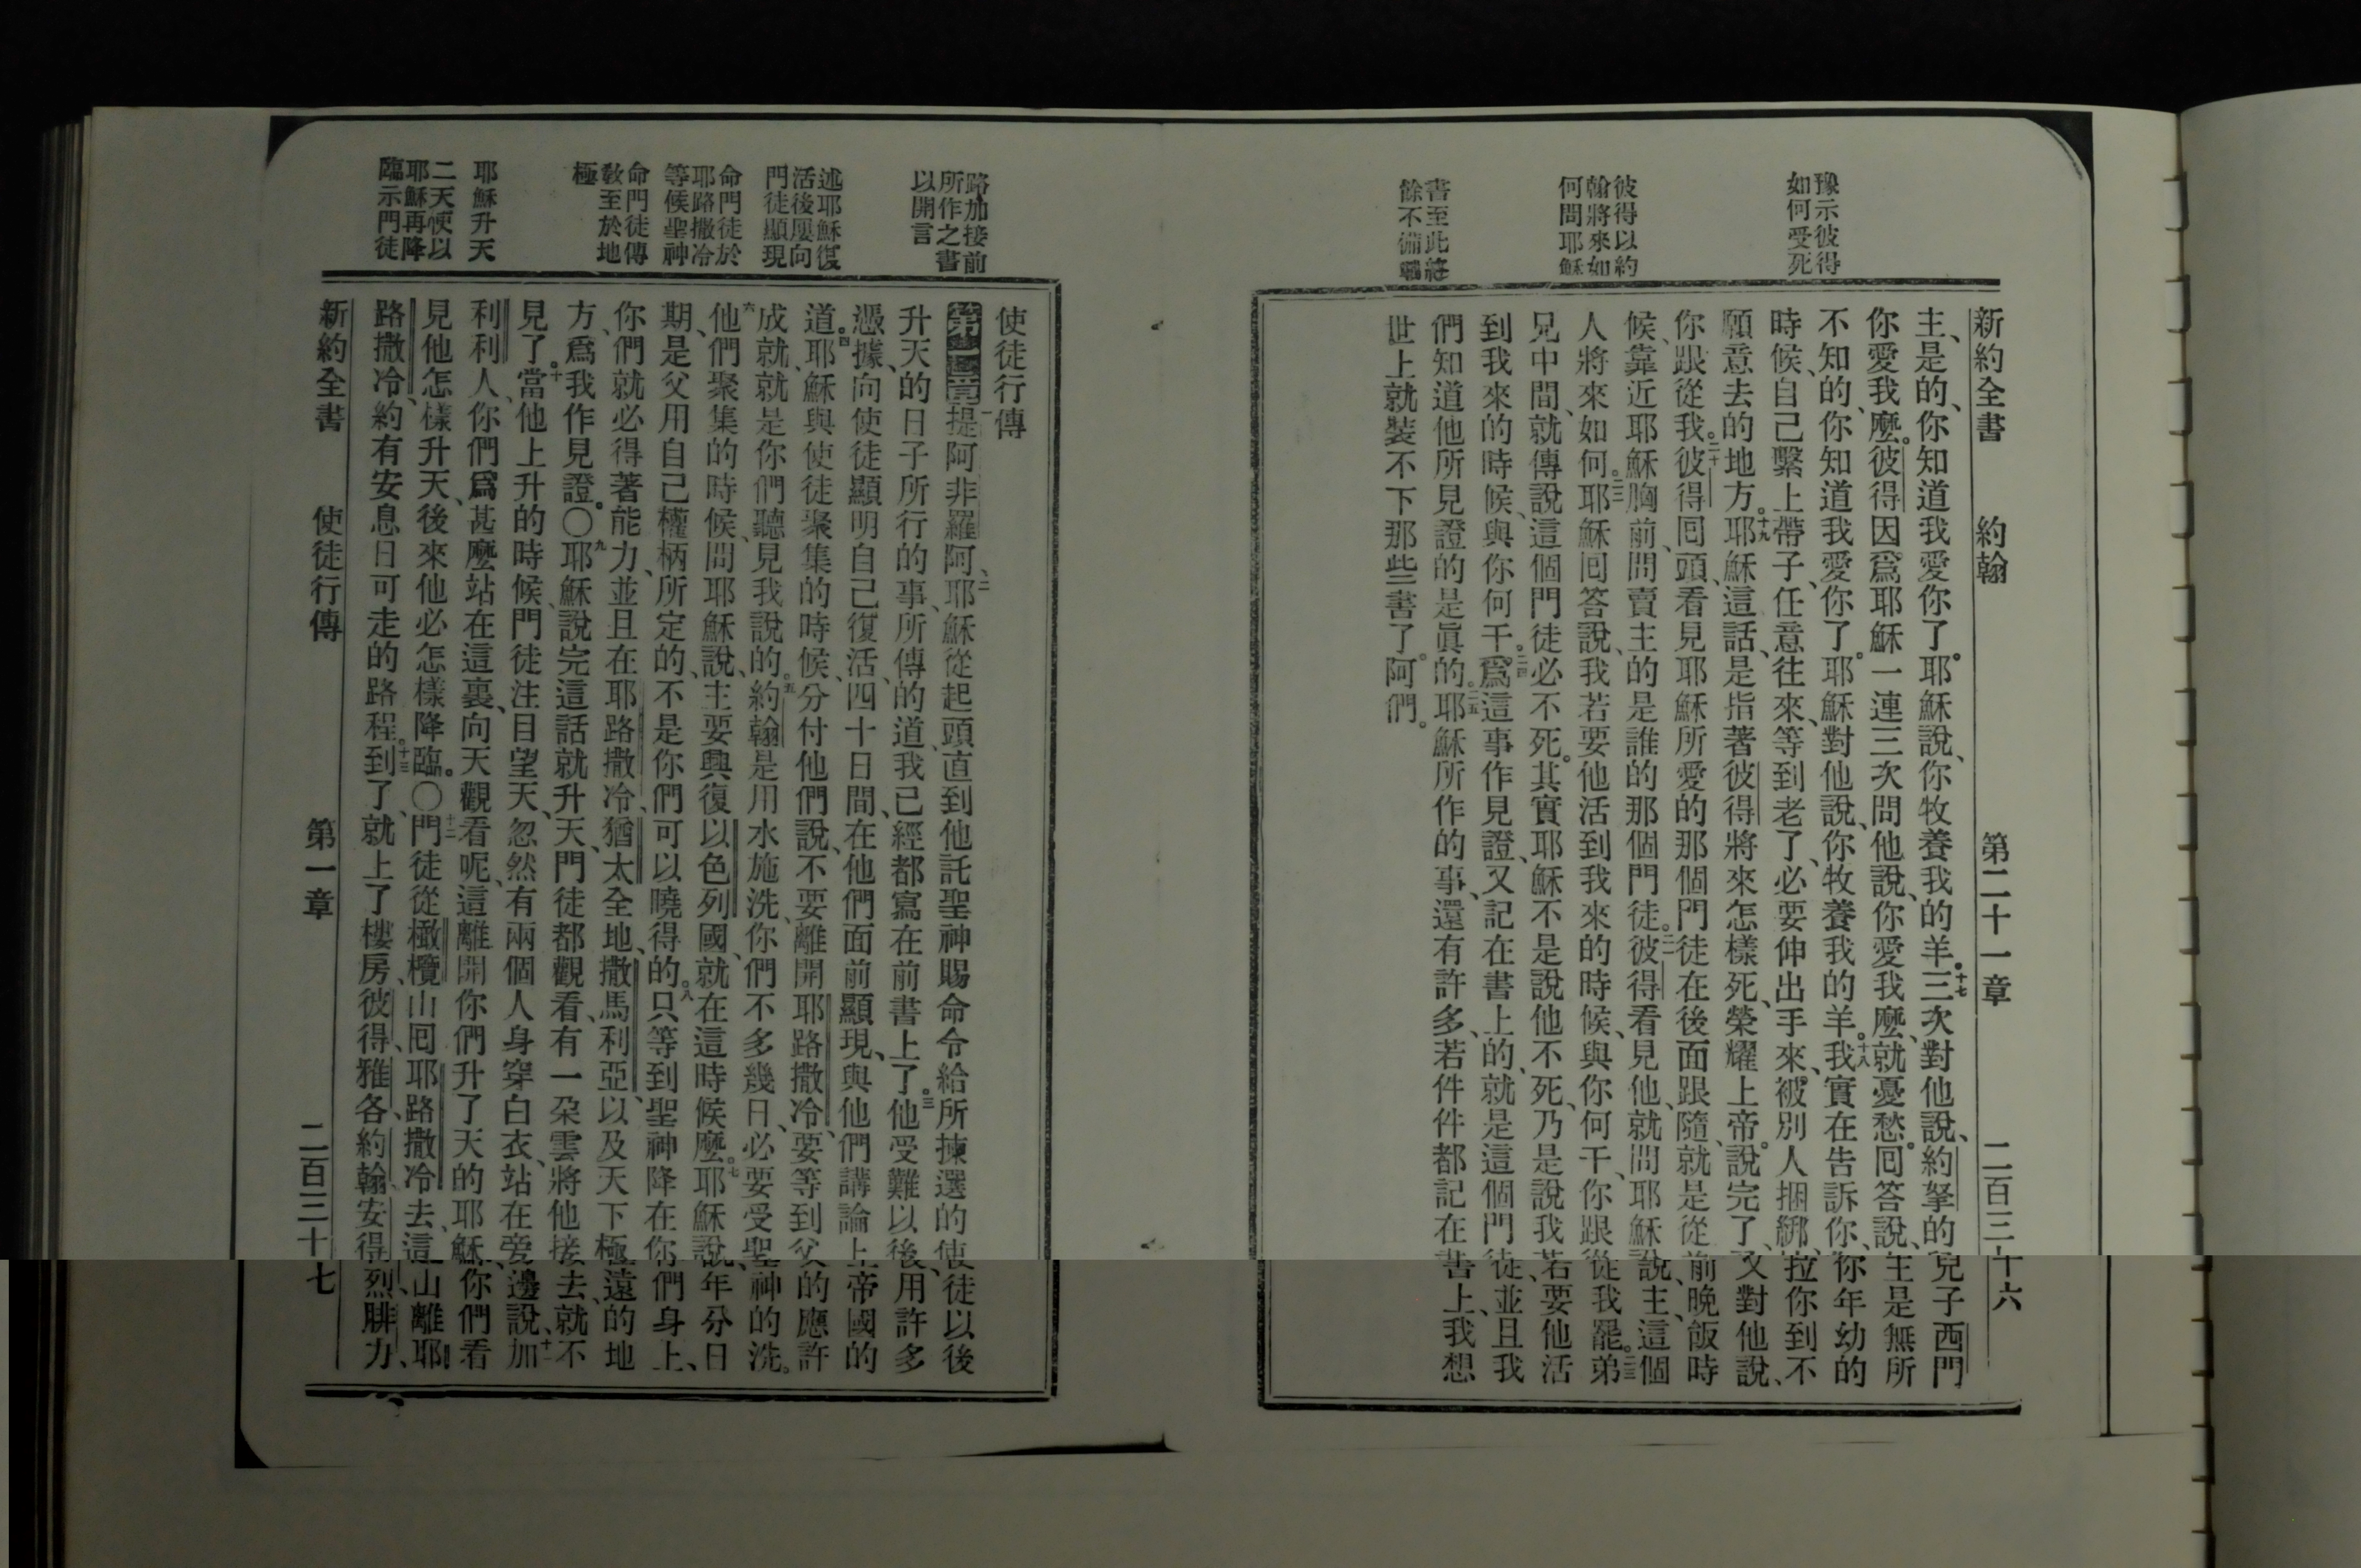 豫示彼得
如何受死
彼得以約
翰將來如
何問耶穌
書至此終
餘不備載
新約全書 約翰 第二十一章 二百三十六
主、是的、你知道我愛你了。耶穌說、你牧養我的羊。十七三次對他說、約拏的兒子西門
你愛我麼。彼得因爲耶穌一連三次問他說、你愛我麼、就憂愁。回答說、主是無所
不知的、你知道我愛你了。耶穌對他說、你牧養我的羊。十八我實在告訴你、你年幼的
時候、自己繫上帶子、任意往來、等到老了、必要伸出手來、被別人捆綁、拉你到不
願意去的地方。十九耶穌這話、是指著彼得將來怎樣死、榮耀上帝。說完了、又對他說、
你跟從我。二十彼得回頭、看見耶穌所愛的那個門徒在後面跟隨、就是從前晚飯時
候、靠近耶穌胸前、問賣主的是誰的那個門徒。二一彼得看見他、就問耶穌說、主、這個
人將來如何。二二耶穌回答說、我若要他活到我來的時候、與你何干、你跟從我罷。二三弟
兄中間、就傳說這個門徒必不死。其實耶穌不是說他不死、乃是說我若要他活
到我來的時候、與你何干。二四爲這事作見證、又記在書上的、就是這個門徒、並且我
們知道他所見證的是眞的。二五耶穌所作的事、還有許多、若件件都記在書上、我想
世上就裝不下那些書了。阿們。
路加接前
所作之書
以開言
述耶穌復
活後屢向
門徒顯現
命門徒於
耶路撒冷
等候聖神
命門徒傳
敎至於地
極
耶穌升天
二天使以
耶穌再降
臨示門徒
使徒行傳
第一章 一提阿非羅阿、二耶穌從起頭直到他託聖神賜命令給所揀選的使徒以後
升天的日子所行的事、所傳的道、我已經都寫在前書上了。三他受難以後、用許多
憑據、向使徒顯明自己復活、四十日間、在他們面前顯現、與他們講論上帝國的
道。四耶穌與使徒聚集的時候、分付他們說、不要離開耶路撒冷、要等到父的應許
成就、就是你們聽見我說的。五約翰是用水施洗、你們不多幾日、必要受聖神的洗。
六他們聚集的時候、問耶穌說、主要興復以色列國、就在這時候麼。七耶穌說、年分日
期、是父用自己權柄所定的、不是你們可以曉得的。八只等到聖神降在你們身上、
你們就必得著能力、並且在耶路撒冷、猶太全地、撒馬利亞、以及天下極遠的地
方、爲我作見證。〇九耶穌說完這話、就升天、門徒都觀看、有一朶雲將他接去、就不
見了。十當他上升的時候、門徒注目望天、忽然有兩個人身穿白衣、站在旁邊說、十一加
利利人、你們爲甚麼站在這裏、向天觀看呢、這離開你們升了天的耶穌、你們看
見他怎樣升天、後來他必怎樣降臨。〇十二門徒從橄欖山回耶路撒冷去、這山離耶
路撒冷、約有安息日可走的路程。十三到了、就上了樓房、彼得、雅各、約翰、安得烈、腓力、
新約全書 使徒行傳 第一章 二百三十七